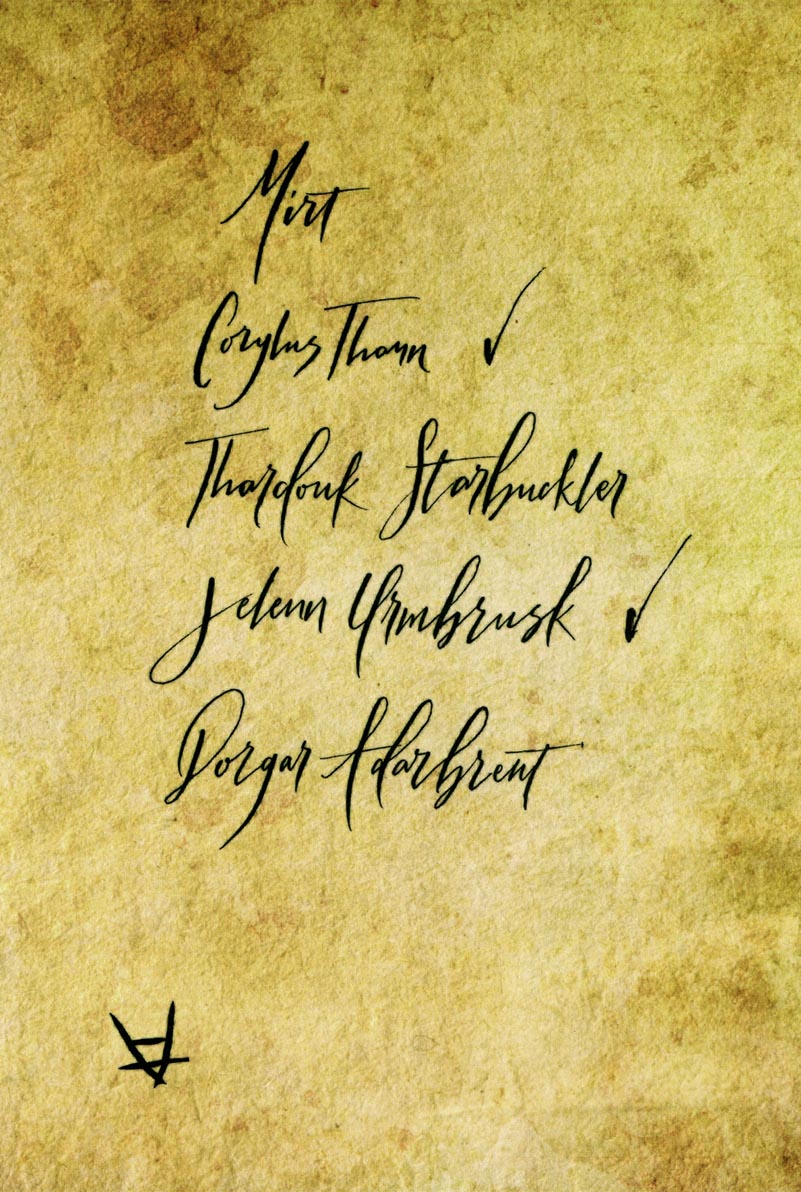 Mirt
Corylus Thann ✓
Thardouk Starbuckler
Jelenn Urmbrusk ✓
Dorgar Adarbrent